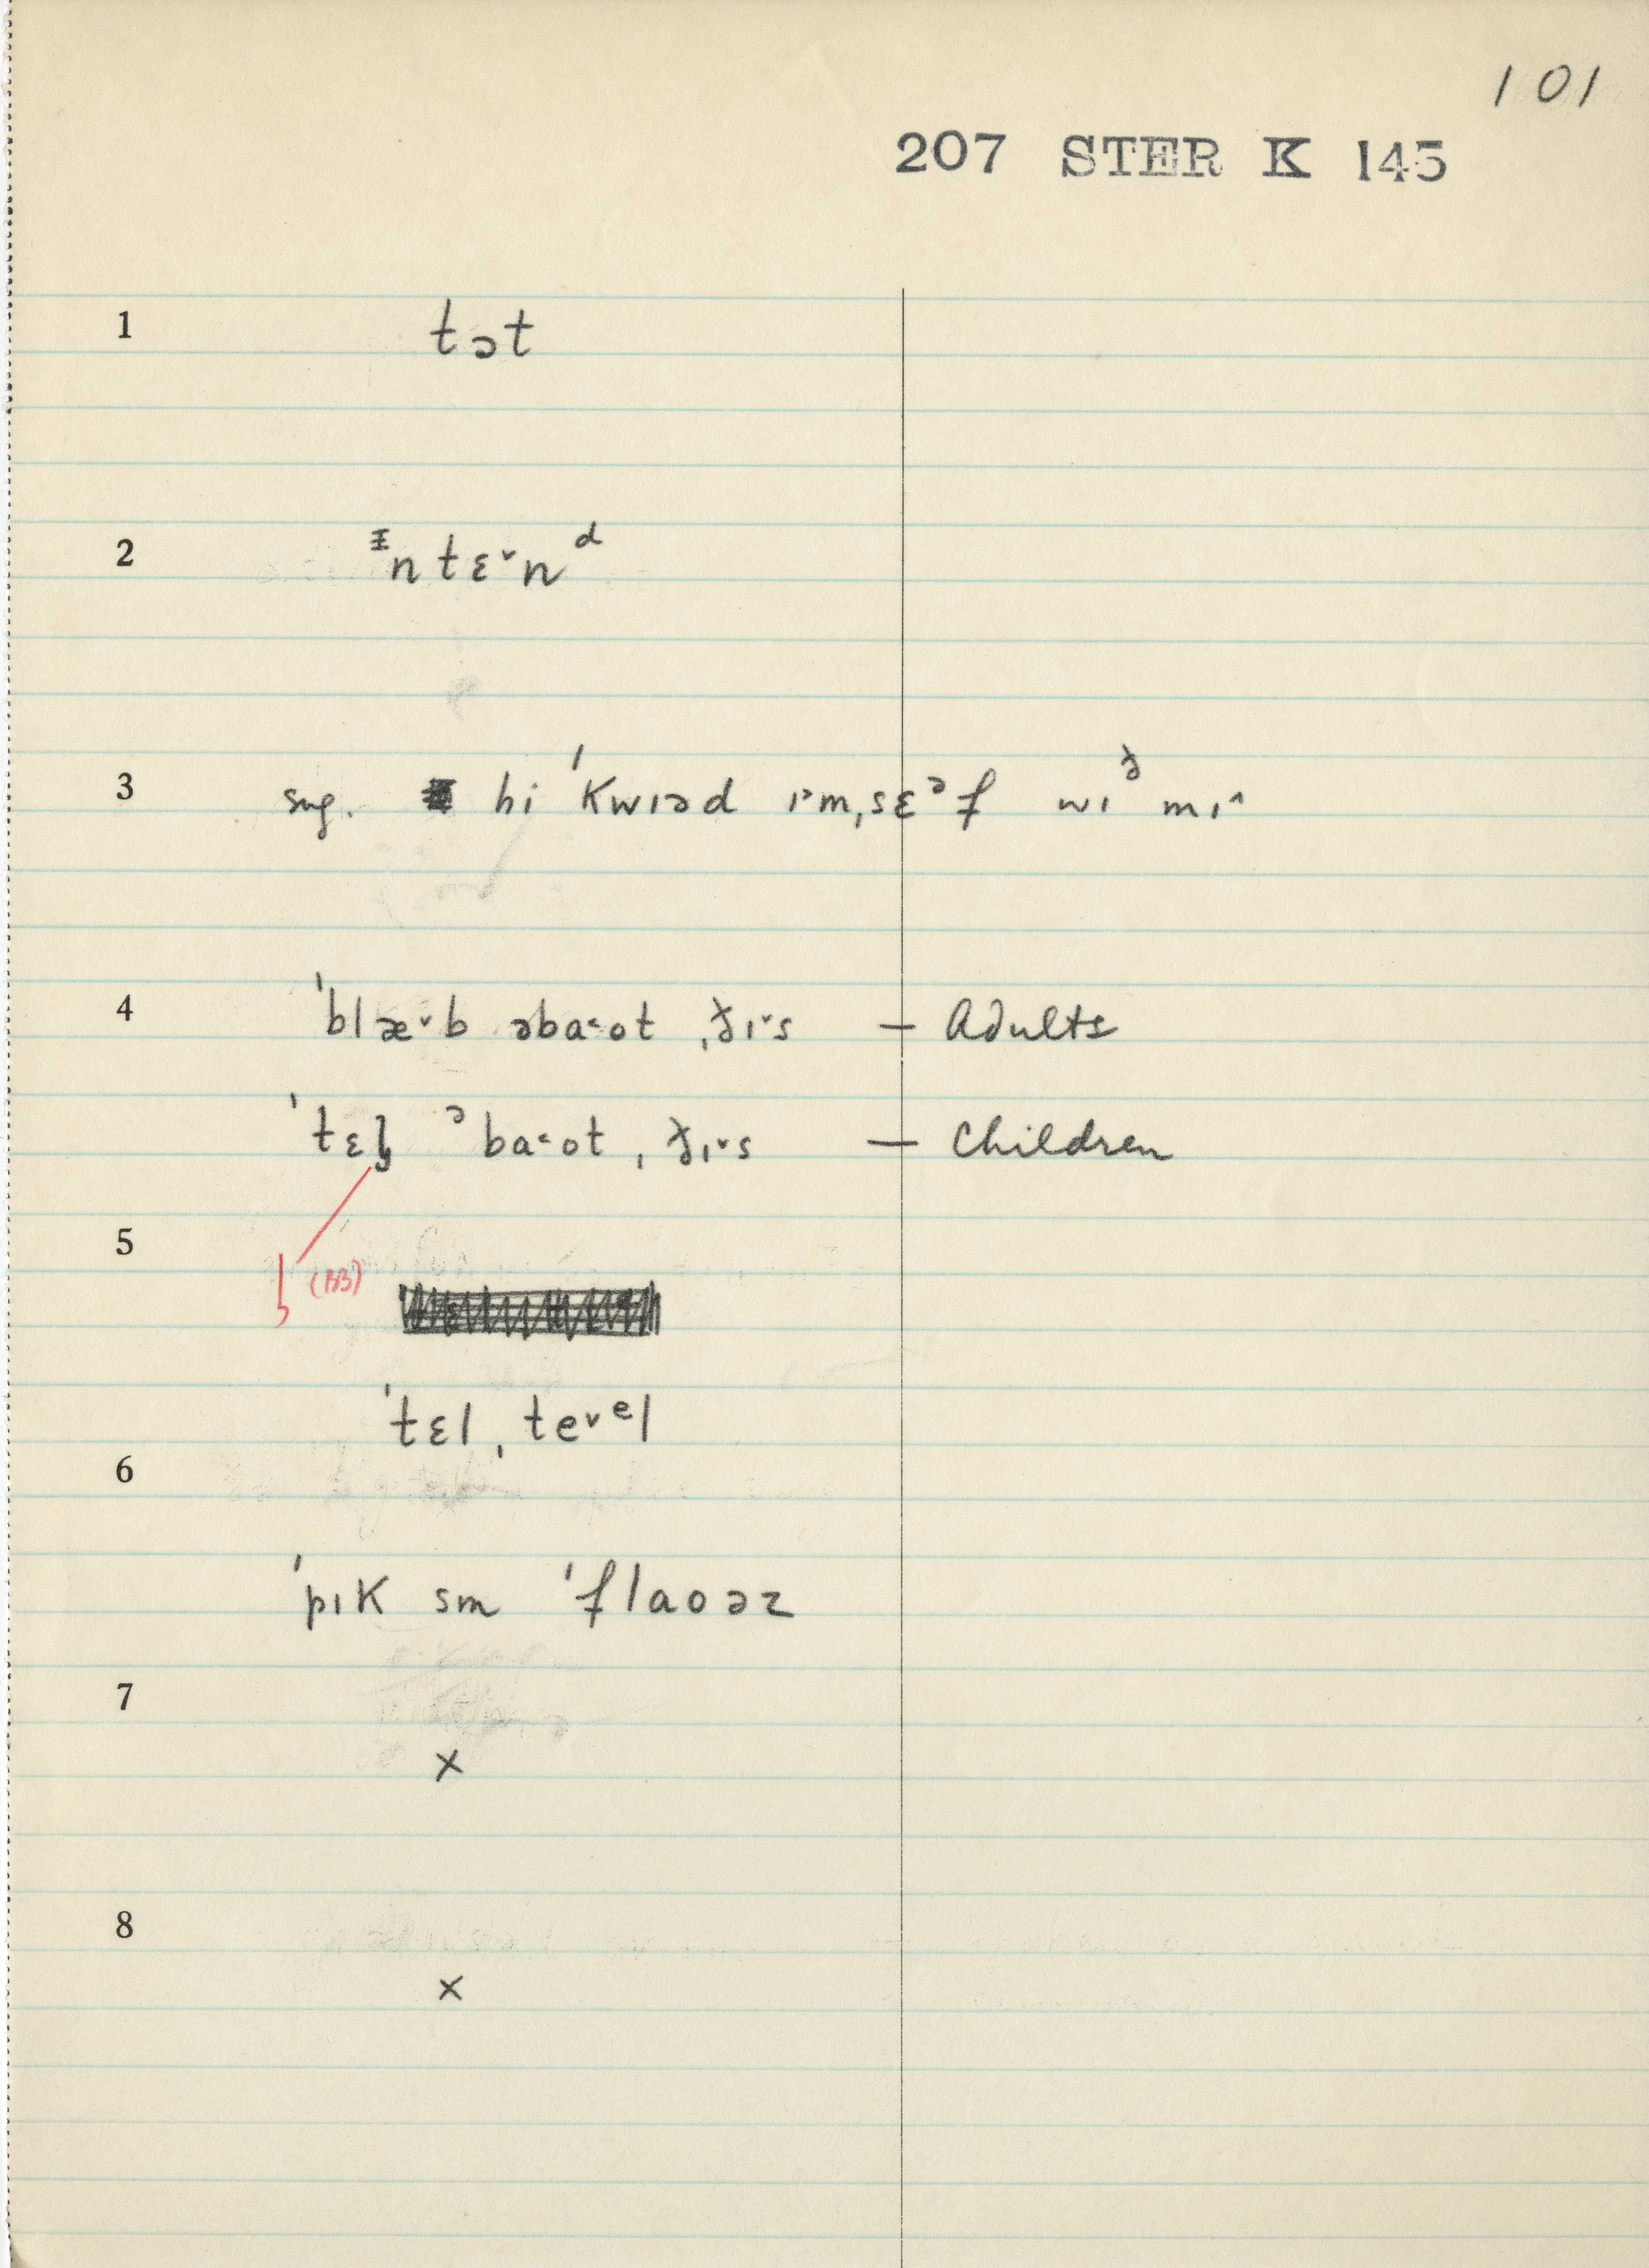 101
207 STER K 145
1 tɔt
2 ᵻntɛ˅nᵈ
3 sug. hi ˈkwɪəd ɪ˃mˌsɛᵊf wɪᶞ mɪ˄
4 ˈblæ˅b əba˂ot ˌðɪ˅s — Adults
ˈtɛl̡ ᵊba˂ot ˌðɪ˅s — Children
5
l̡ (BB)
ˈtɛlˌte˅ᵉl
6
ˈpɪk sm ˈflaoəz
7
x
8
x